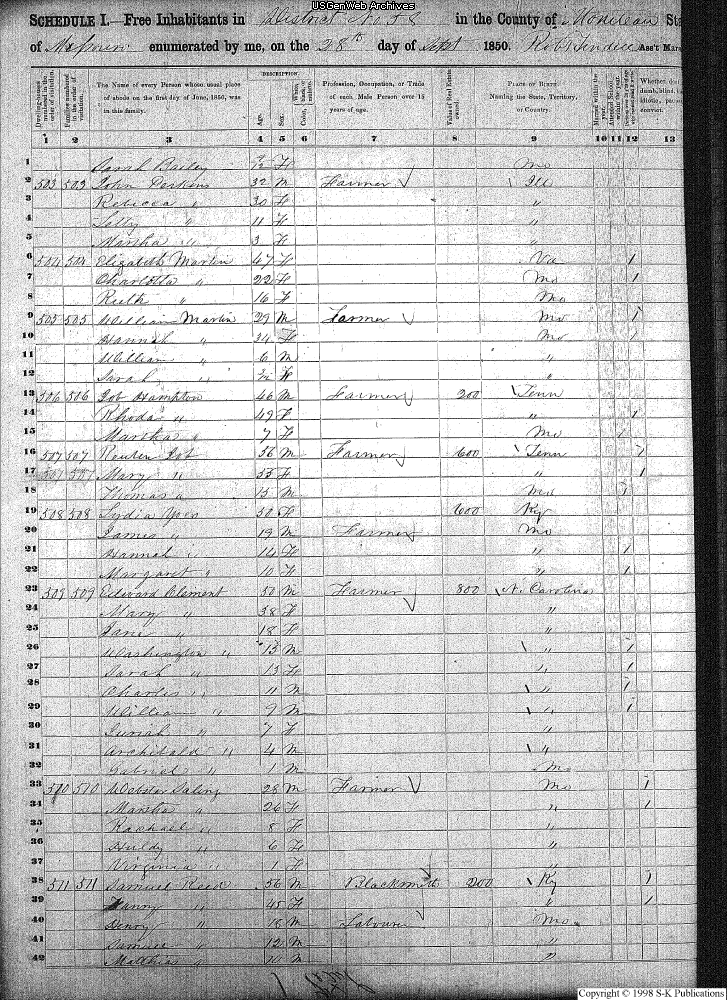 USGenWeb Archives
SCHEDULE I.—Free Inhabitants in District No 58 in the County of Moniteau Sta
of Missouri enumerated by me, on the 28th day of Sept 1850. Robt Tindell Ass't Mars
DESCRIPTION.
Dwelling-houses numbered in the order of visitation.
Families numbered in the order of visitation.
The Name of every Person whose usual place of abode on the first day of June, 1850, was in this family.
Age.
Sex.
Color,
Profession, Occupation, or Trade of each Male Person over 15 years of age.
Value of Real Estate owned.
PLACE OF BIRTH. Naming the State, Territory, or Country.
Married within the year.
Attended School within the year.
Whether
1 2 3 4 5 6 7 8 9 10 11 12 13
1 Sarah Bailey F Mo
2 503 503 John Perkins 32 M Farmer Ill
3 Rebecca " 30 F "
4 Letty " 11 F "
5 Marsha " 3 F "
6 504 504 Elizabeth Martin 47 F Va 1
7 Charlotta " 22 F Mo 1
8 Ruth " 16 F Mo
9 505 505 William Martin 29 M Farmer Mo 1
10 Hannah " 24 F Mo 1
11 William " 6 M "
12 Sarah " F "
13 506 506 Job Hampton 46 M Farmer 200 Tenn
14 Rhoda " 49 F " 1
15 Martha " 7 F Mo 1
16 507 507 Reuben Job 36 M Farmer 600 Tenn 1
17 507 507 Mary " 33 F " 1
18 Thomas " 15 M Mo 1
19 508 508 Lydia 50 F 600 Ky
20 James " 19 M Farmer Mo
21 Hannah " 14 F " 1
22 Margaret " 10 F " 1
23 509 509 Edward Clement 50 M Farmer 800 N. Carolina
24 Mary " 38 F "
25 Jane " 18 F "
26 Washington " 15 M " 1
27 Sarah " 13 F " 1
28 Charles " 11 M " 1
29 William " 9 M " 1
30 " 7 F "
31 Archibald " 4 M "
32 Gabriel " 1 M Mo
33 510 510 Webster Saling 28 M Farmer Mo 1
34 Marsha " 26 F " 1
35 Rachael " 8 F "
36 Huldy " 6 F "
37 Virginia " 1 F "
38 511 511 Samuel Reed 56 M Blacksmith 200 Ky 1
39 " 45 F " 1
40 Henry " 18 M Labourer Mo
41 Samuel " 12 M "
42 Matthias " 10 M "
Copyright © 1998 S-K Publications